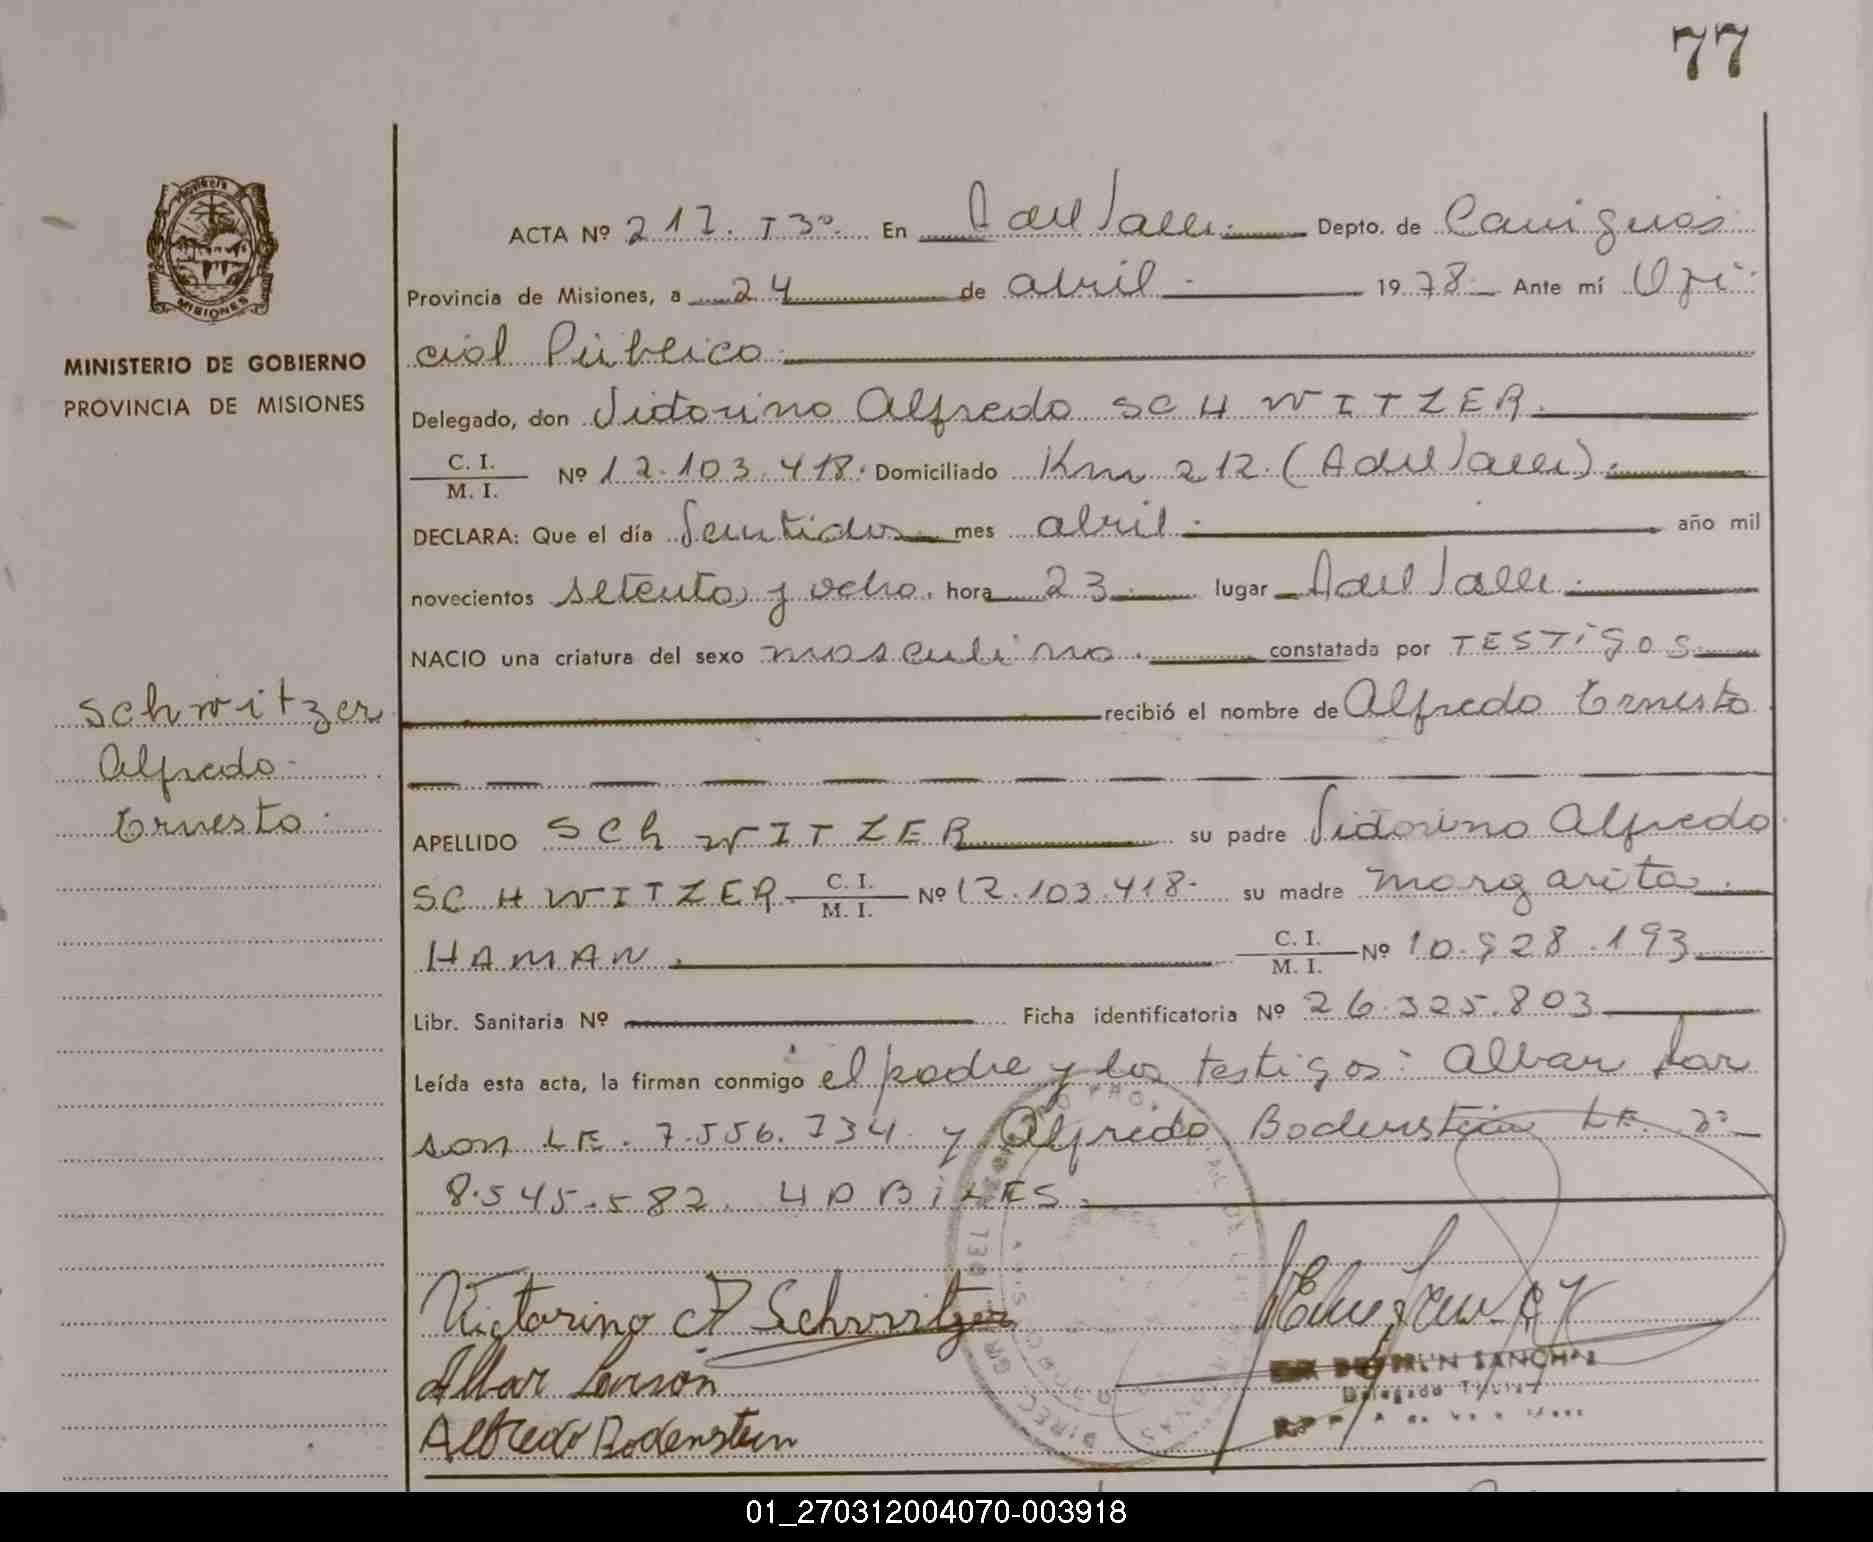 77
ACTA Nº 217. T3º. En A del Valle. Depto. de Cainguás
Provincia de Misiones, a 24 de abril 1978. Ante mí Ofi-
cial Público.
MINISTERIO DE GOBIERNO
PROVINCIA DE MISIONES
Delegado, don Victorino Alfredo SCHWITZER.
C. I. / M. I. Nº 12.103.418. Domiciliado Km 212. (A del Valle).
DECLARA: Que el día Veintidos mes abril. año mil
novecientos setenta y ocho. hora 23. lugar A del Valle.
NACIO una criatura del sexo masculino. constatada por TESTigos
recibió el nombre de Alfredo Ernesto
Schwitzer
Alfredo
Ernesto.
APELLIDO SChWITZER su padre Victorino Alfredo
SCHWITZER. C. I. / M. I. Nº 12.103.418. su madre Margarita
HAMAN. C. I. / M. I. Nº 10.928.193
Libr. Sanitaria Nº Ficha identificatoria Nº 26.325.803
Leída esta acta, la firman conmigo el padre y los testigos: Alvar Lar
son LE. 7.556.734. y Alfredo Bodenstein LE. nº
8.545.582. HABiLES.
Victorino A Schwitzer
Alvar Larson
Alfredo Bodenstein
Delegado Titular
MISIONES
01_270312004070-003918